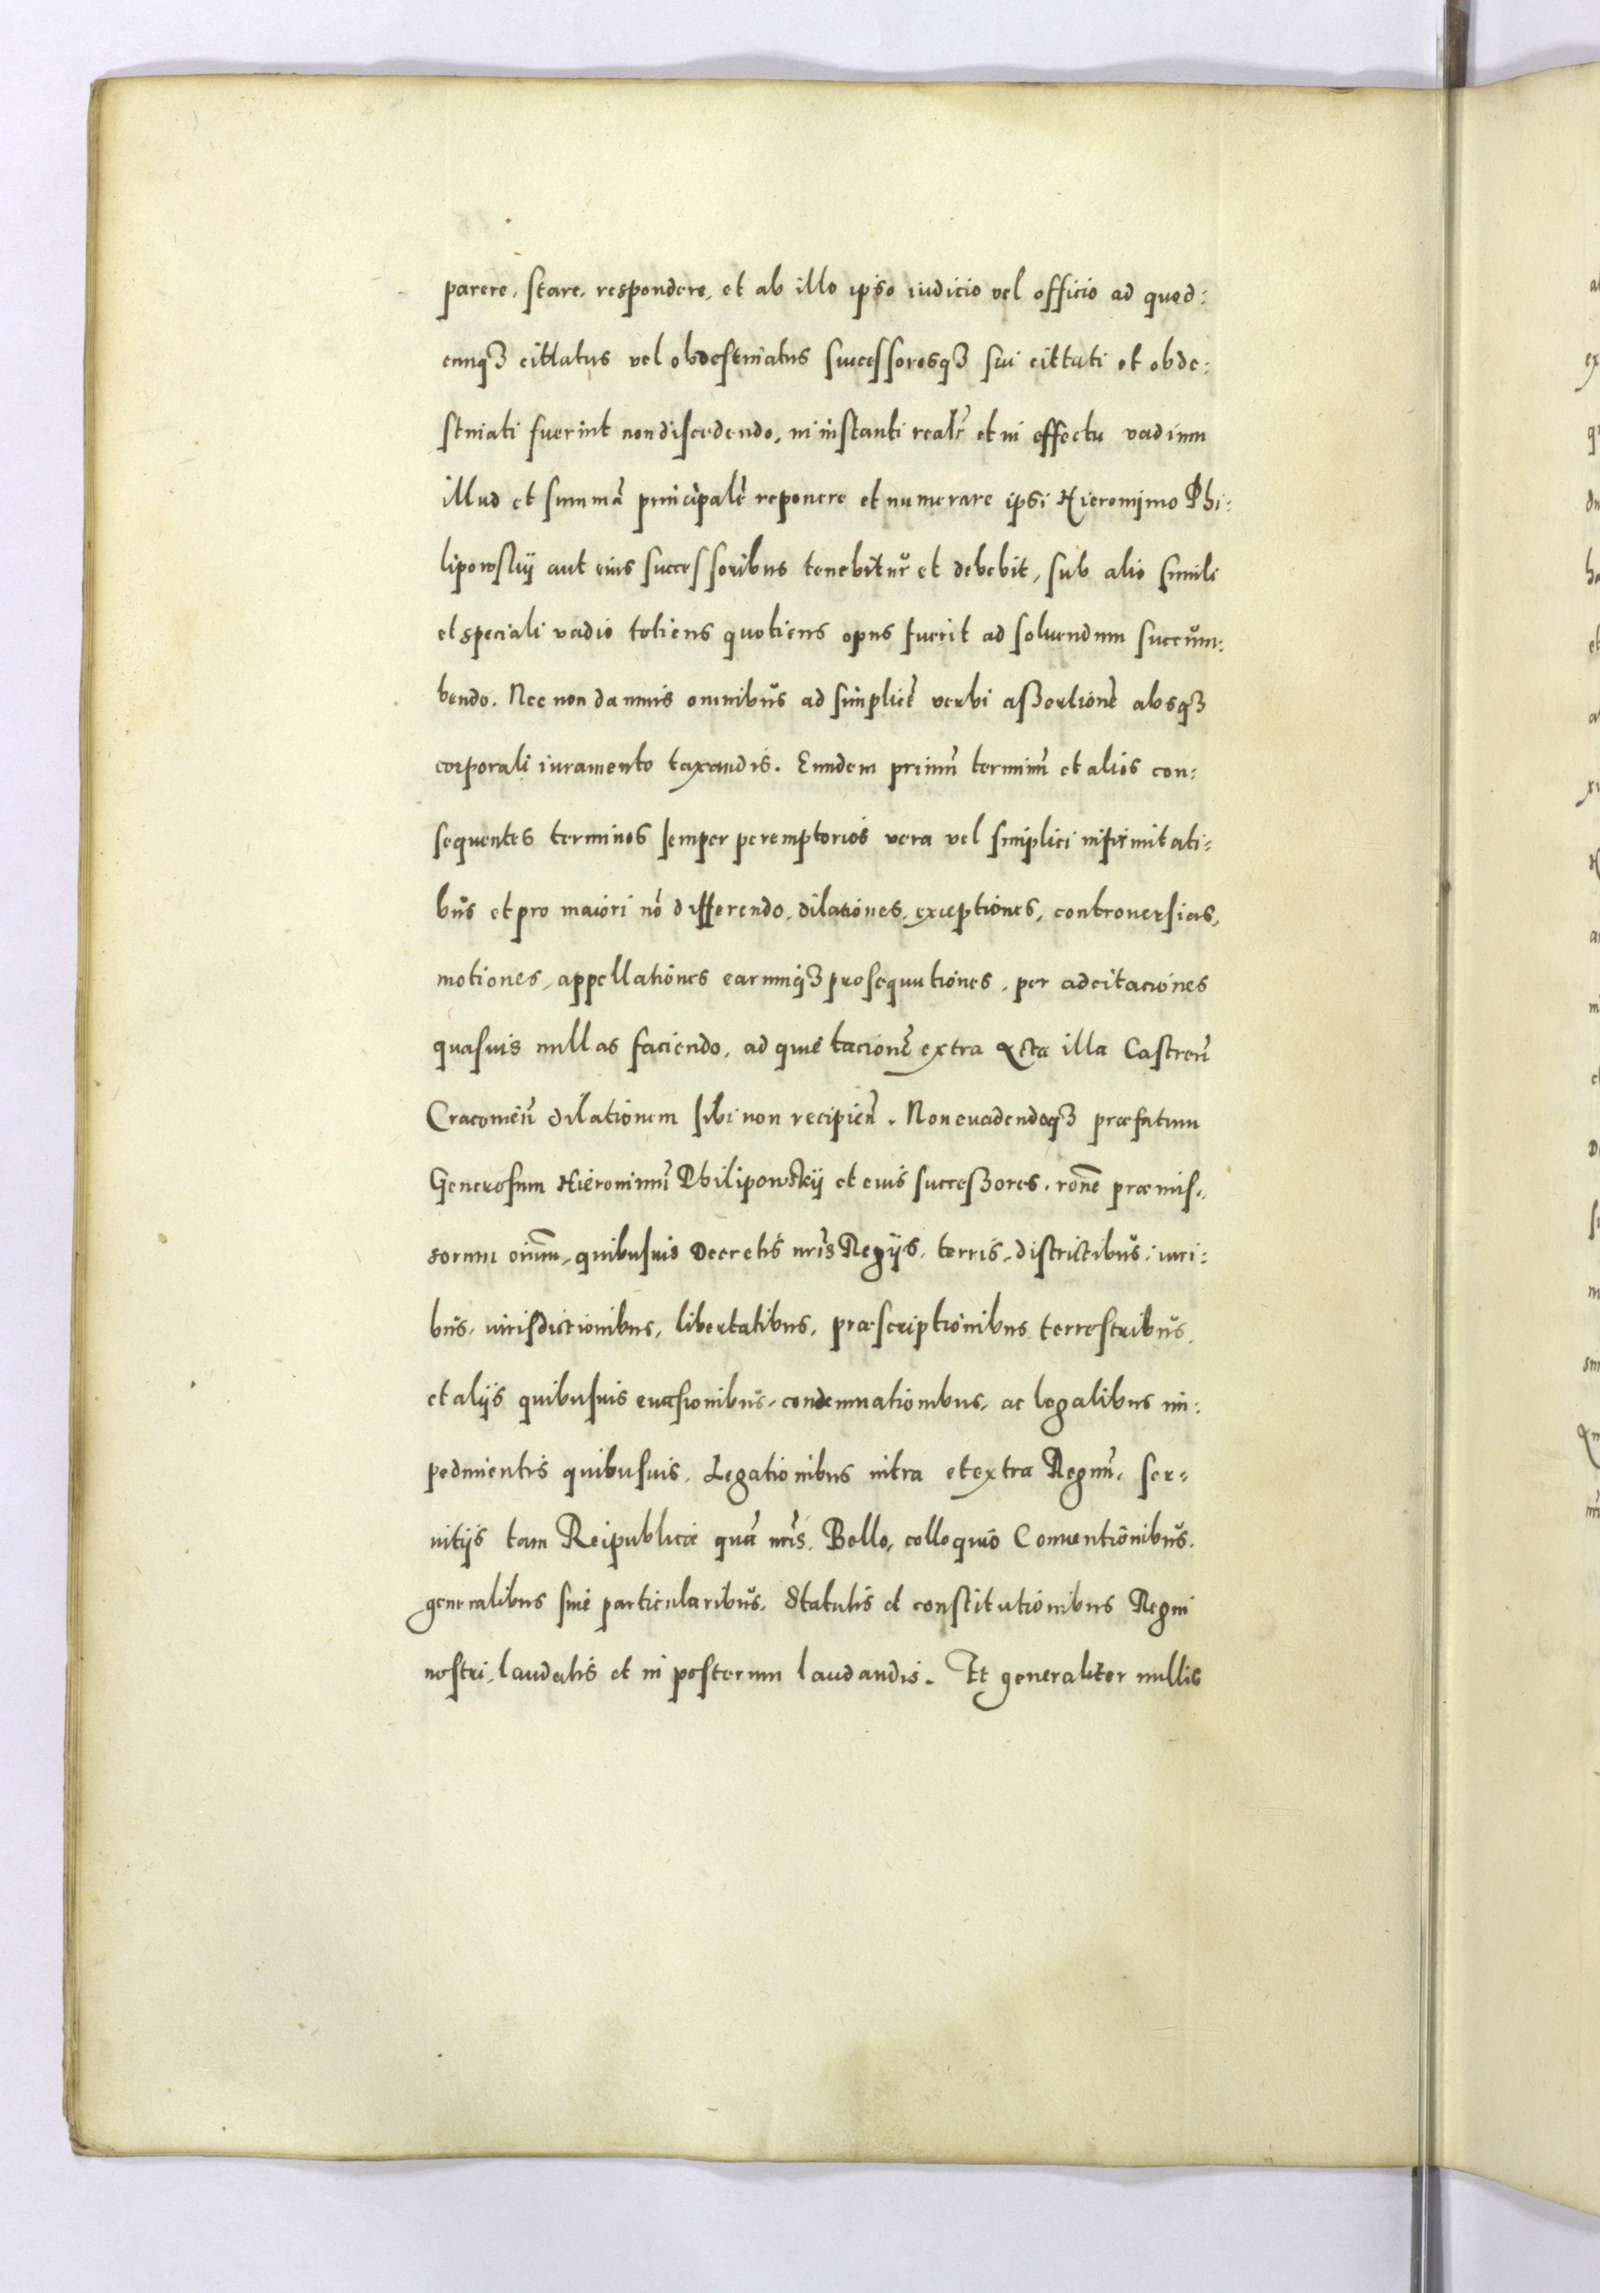 parere, stare, respondere, et ab illo ipso iudicio vel officio ad quod:
cunqȝ cittatus vel obdestinatus successoresqȝ sui cittati et obde:
stinati fuerint non discedendo, in instanti realr̃ et in effectu vadium
illud et summã principalẽ reponere et numerare ipsi Hieronimo Phi:
lipowskij aut eius successoribus tenebitur et debebit, sub alio simili
et speciali vadio totiens quotiens opus fuerit ad soluendum succum:
bendo. Nec non damnis omnibus ad simplicẽ verbi aßertionẽ absqȝ
corporali iuramento taxandis. Eundem primũ terminũ et alios con:
sequentes terminos semper peremptorios vera vel simplici infirmitati:
bus et pro maiori nõ differendo, dilationes, exceptiones, controuersias,
motiones, appellationes earumqȝ prosequutiones, per adcitaciones
quasuis nullas faciendo, ad quietacionẽ extra Acta illa Castreñ
Cracouieñ dilationem sibi non recipieñ. Non euadendoqȝ præfatum
Generosum Hieronimũ Philipowskij et eius succeßores, rõne præmis:
sorum oiũm, quibusuis Decretis nr̃is Regijs, terris, districtibus, iuri:
bus, iurisdictionibus, libertatibus, præscriptionibus terrestribus,
et alijs quibusuis euasionibus, condemnationibus, ac legalibus im:
pedimentis quibusuis, Legationibus intra et extra Regnũ, ser:
uitijs tam Reipublicæ quã nr̃is, Bello, colloquio Conuentionibus,
generalibus siue particularibus, Statutis et constitutionibus Regni
nostri, laudatis et in posterum laudandis. Et generaliter nullis